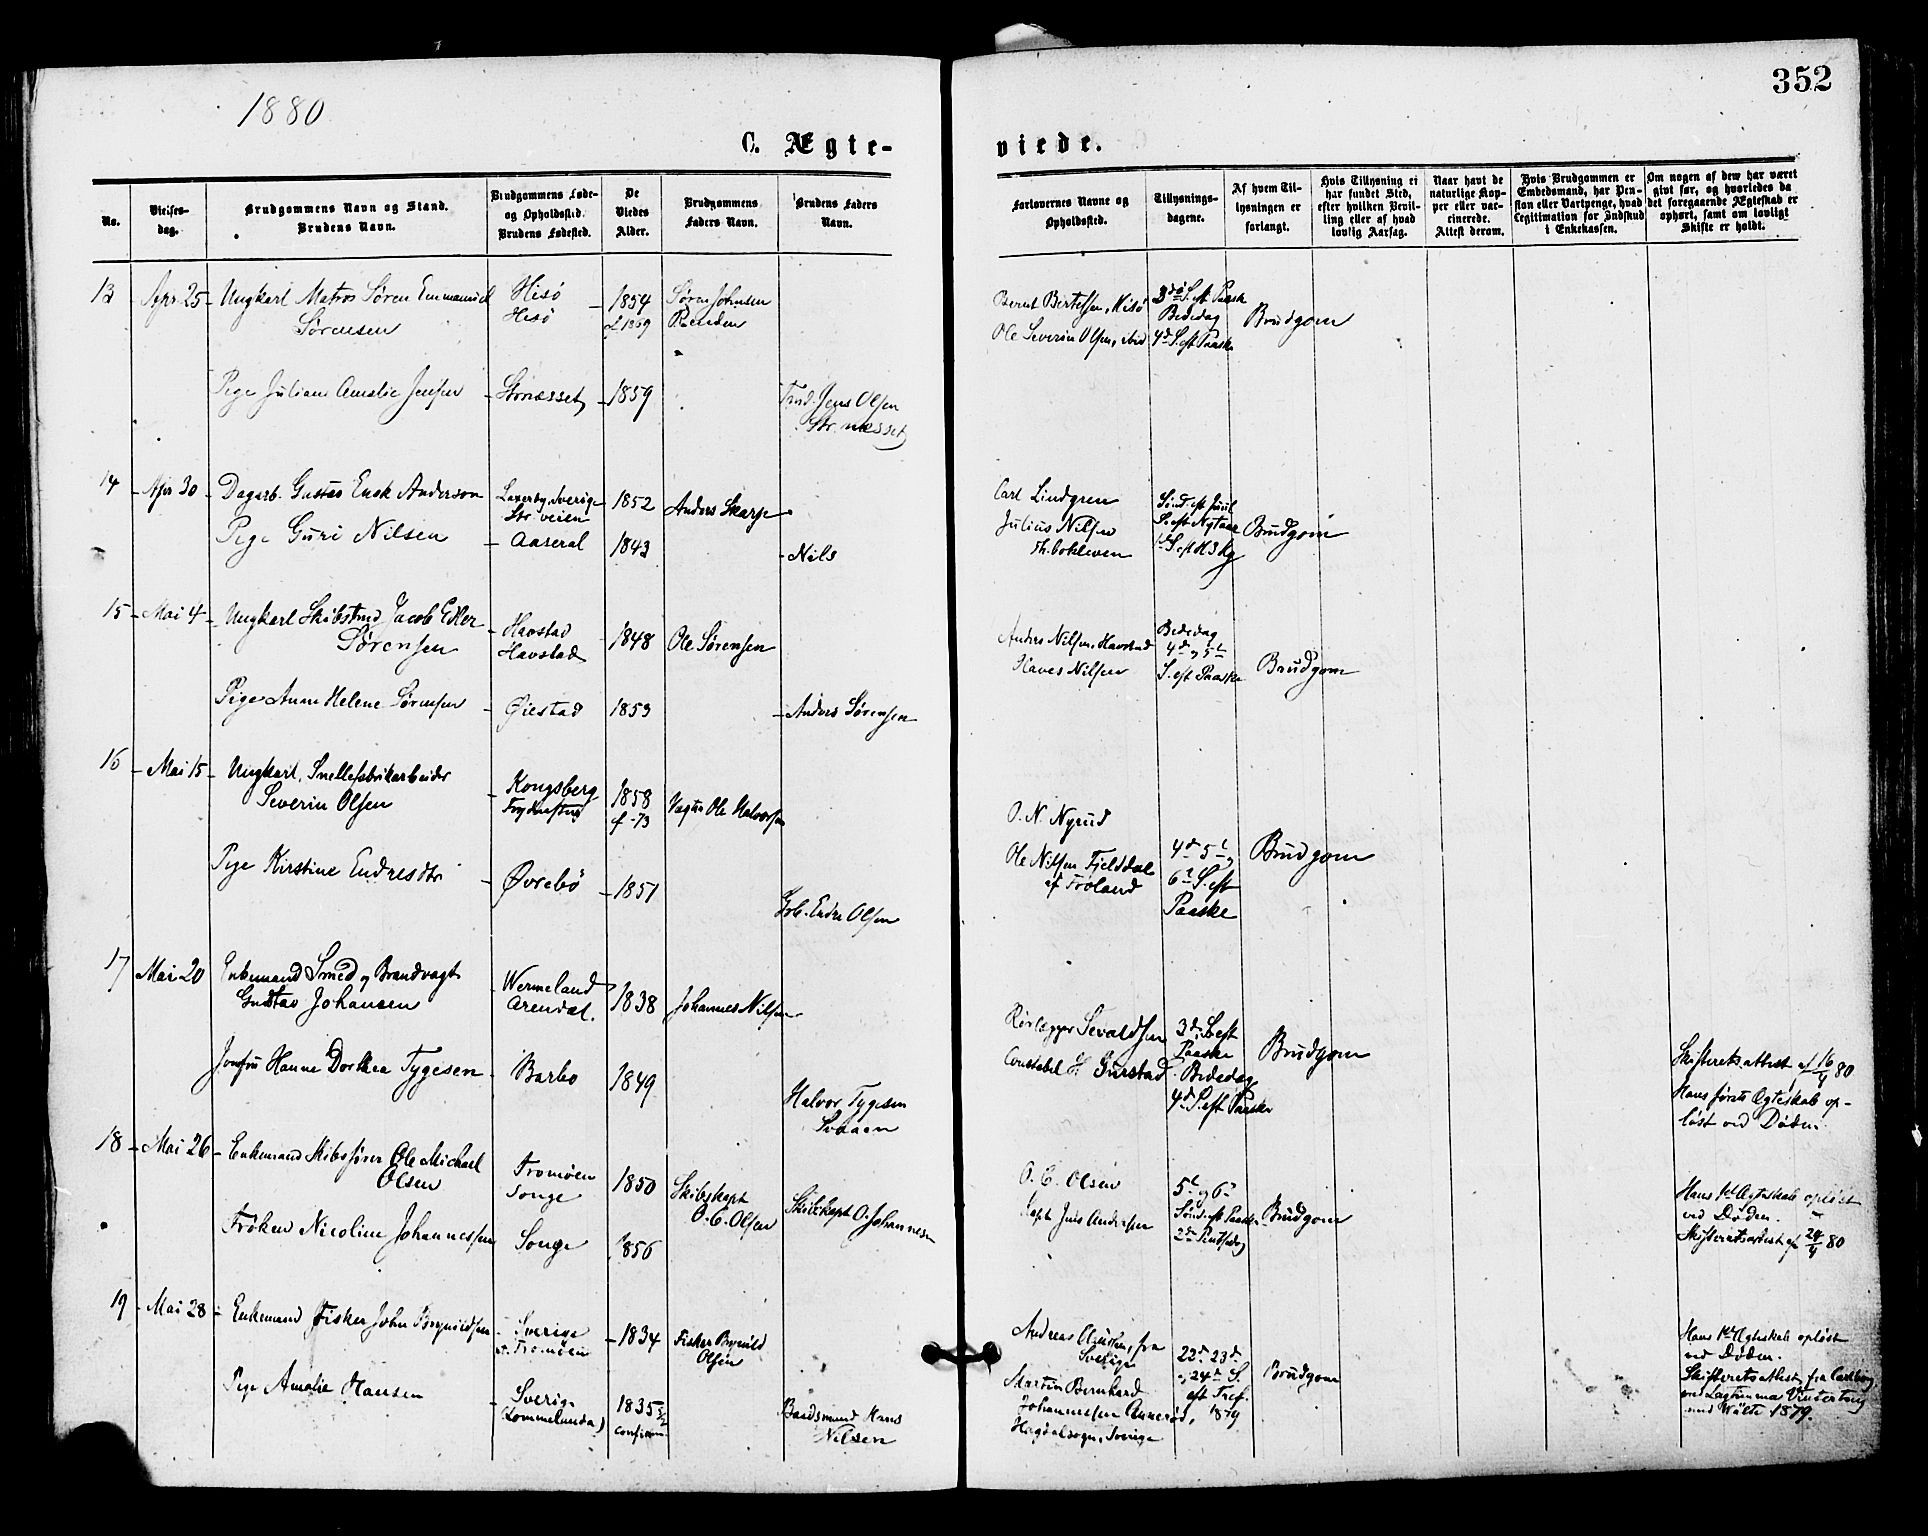 352
1880
C. Ægte-
viede.
No.
Vielses-
dag.
Brudgommens Navn og Stand.
Brudens Navn.
Brudgommens Føde-
og Opholdssted.
Brudens Fødested.
De
Viedes
Alder.
Brudgommens
Faders Navn.
Brudens Faders
Navn.
Forlovernes Navne og
Opholdssted.
Tillysnings-
dagene.
Af hvem Til-
lysningen er
forlangt.
Hvis Tillysning ei
har fundet Sted,
efter hvilken Bevil-
ling eller af hvad
lovlig Aarsag.
Naar havt de
naturlige Kop-
per eller vac-
cinerede.
Attest derom.
Hvis Brudgommen er
Embedsmand, har Pen-
sion eller Vartpenge, hvad
Legitimation for Indskud
i Enkekassen.
Om nogen af dem har været
gift før, og hvorledes da
det foregaaende Ægteskab er
ophørt, samt om lovligt
Skifte er holdt.
13 Apr 25 Ungkarl Matros Søren Emmanuel
Sørensen
Hisö
Hisö
1854
Søren Johnsen
Bernt Bertelsen, Hisö
Ole Severin Olsen, ibid
3d S. eft Paaske
Bededag
4d S. eft Paaske
Brudgom
Pige Juliane Amalie Jensen
Strnæsset
1859
Jens Olsen
Str. næsset
14 Apr 30 Dagarb. Gustav Anderson
Sverige
Str veien
1852
Anders Skarp
Carl Lindgren
Julius Nilsen
Sönd. eft Juul
S. eft Nytaar
1d S. eft H3kg
Brudgom
Pige Guri Nilsen
Aaseral
1843
Nils
15 Mai 4 Ungkarl Skibstmd Jacob Edler
Sørensen
Havstad
Havstad
1848
Ole Sørensen
Anders Nilsen, Havstad
Haves Nilsen
Bededag
4d og 5t
S. eft Paaske
Brudgom
Pige Anne Helene Sørensen
Øiestad
1853
Anders Sørensen
16 Mai 15 Ungkarl, Snellefabrikarbeider
Severin Olsen
Kongsberg
1858
f -73
Vægter Ole Halvorsen
O. N. Nyrud
Ole Nilsen Fjelddal
af Froland
4d 5t og
6t S. eft
Paaske
Brudgom
Pige Kirstine Endresdtr
Øvrebö
1851
Endre Olsen
17 Mai 20 Enkemand Smed og Brandvagt
Gustav Johansen
Wermeland
Arendal.
1838
Johannes Nilsen
Rørlægger Sevaldsen
Constabel H. Gurstad
3d S. eft
Paaske
Bededag
4d S. eft Paaske
Brudgom
Skifterets attest af 16/4 80
Hans første Ægteskab op-
løst ved Døden.
Jomfru Hanne Dorthea Tygesen
Barbo
1849
Halvor Tygesen
18 Mai 26 Enkemand Skibsfører Ole Michael
Olsen
Tromøen
Songe
1850
Skibskapt
O. C. Olsen
O. C. Olsen
Kapt Jens Andersen
5t og 6t
Sönd. eft Paaske
2den Pintsedag
Brudgom
Hans 1st Ægteskab opløst
ved Døden.
Skifteretsattest af 24/4 80
Frøken Nicoline Johannessen
Songe
1856
Skibskapt O. Johannesen
19 Mai 28 Enkemand Fisker John Brynildsen
Sverige
Tromøen
1834
Fisker Brynild
Olsen
Andreas fra
Sverige
Martin Bernhard
Johannessen
Sverige
22d 23d
og 24d S.
eft Tref.
1879
Brudgom
Hans 1st Ægteskab opløst
ved Døden.
Skifteretsattest fra
1879.
Pige Amalie Hansen
Sverige
1835
Baadsmand Hans
Nilsen